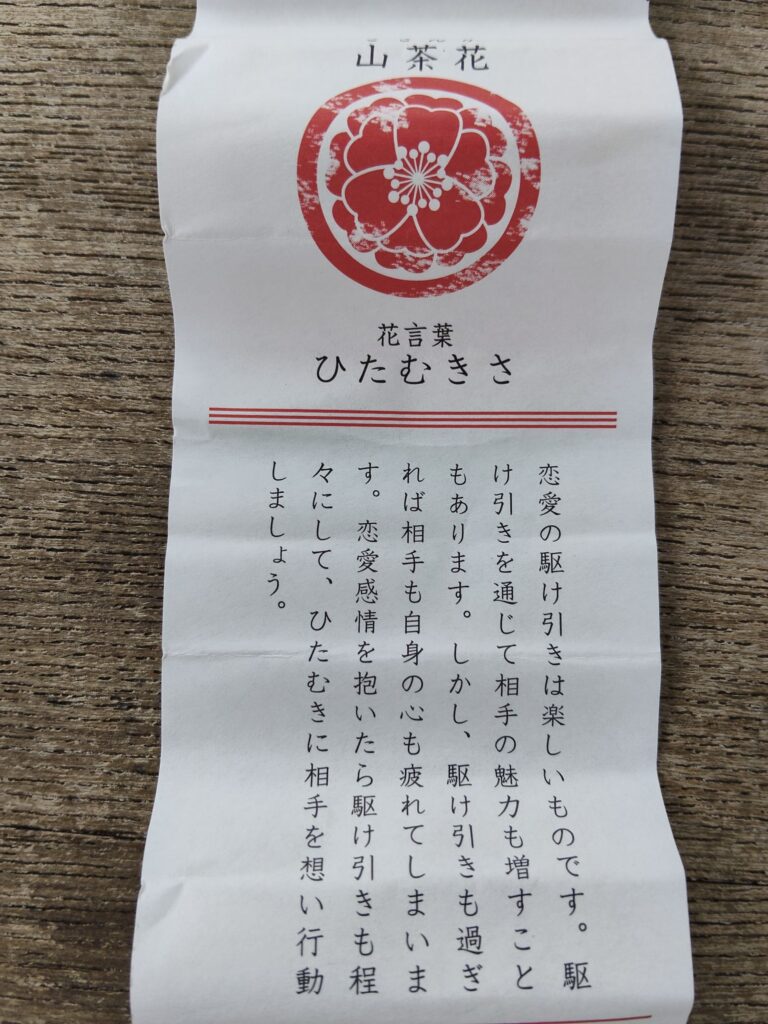 山茶花
花言葉
ひたむきさ
恋愛の駆け引きは楽しいものです。駆
け引きを通じて相手の魅力も増すこと
もあります。しかし、駆け引きも過ぎ
れば相手も自身の心も疲れてしまいま
す。恋愛感情を抱いたら駆け引きも程
々にして、ひたむきに相手を想い行動
しましょう。